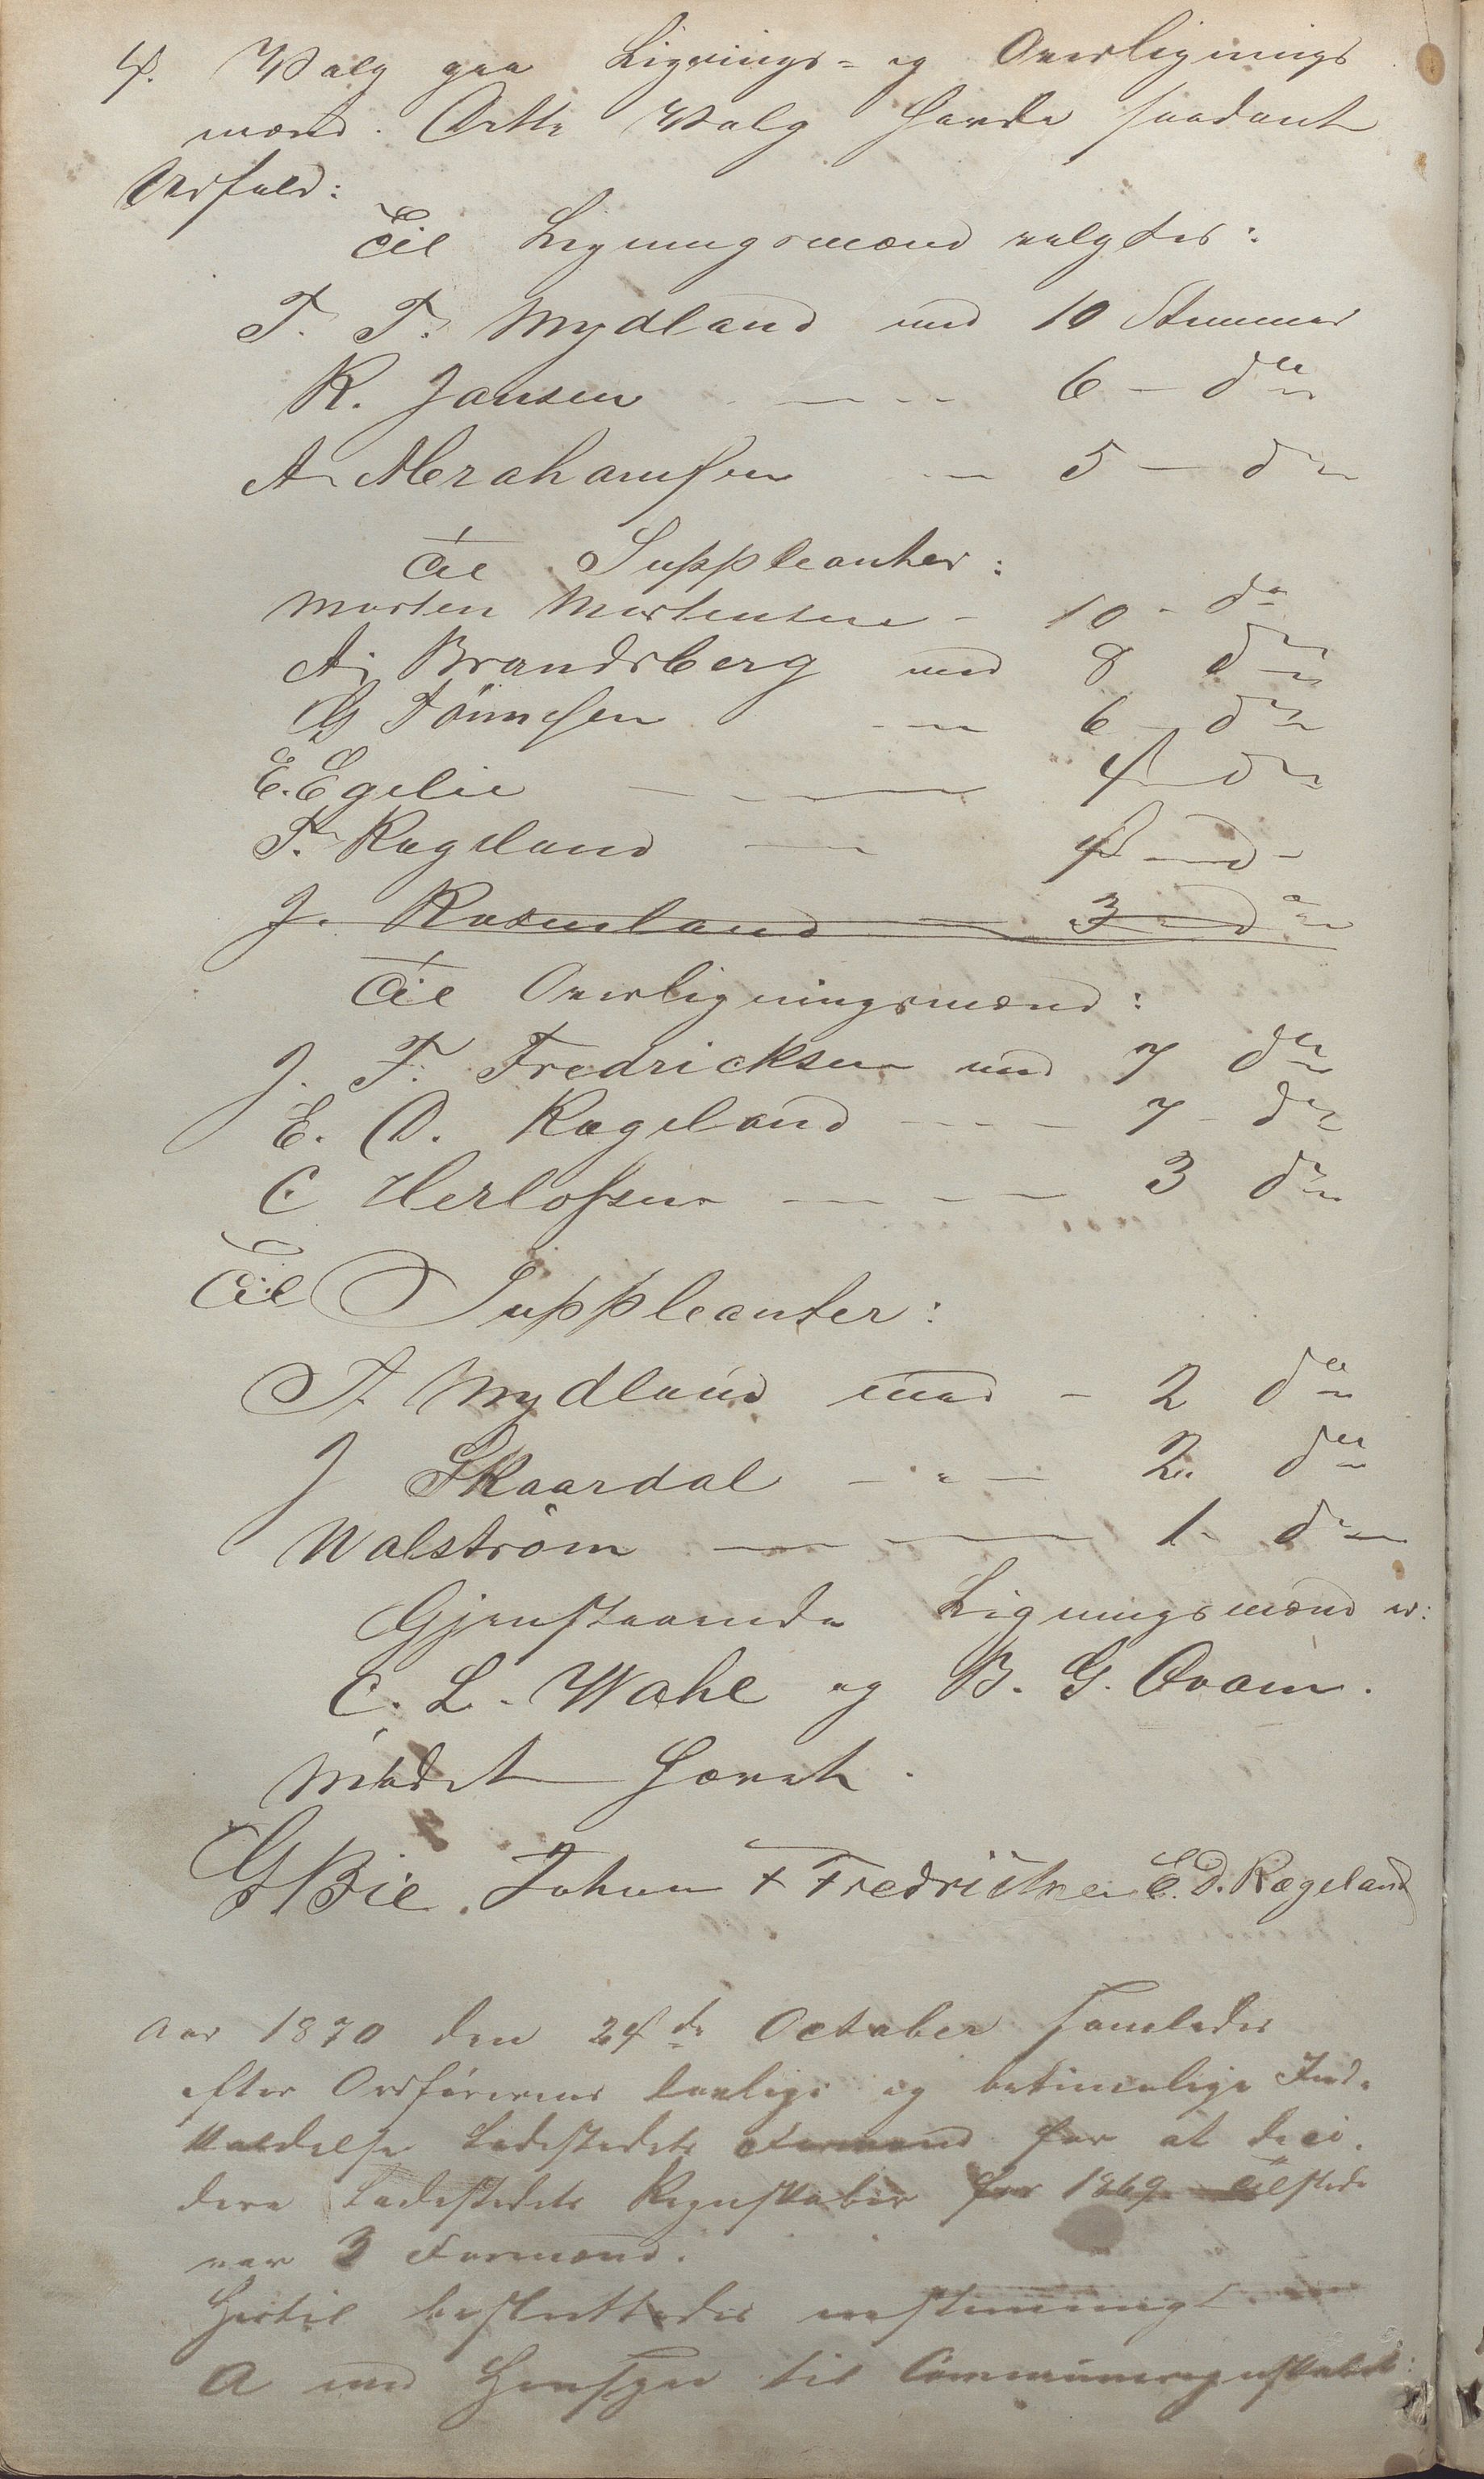 4. Valg paa Lignings- og Overlignings
mænd. Dette Valg havde saadant
Udfald:
Til Ligningsmænd valgtes:
T. T. Mydland med 10 Stemmer
R. Jansen - — - - 6 - do
A. Abrahamsen - — 5 — do
Til Suppleanter:
Morten Mortensen - 10 - do
A. Brandsberg med 8 do
G Tönnesen - — 6 - do
E. Egelie — - — 4 do
T. Rageland — 4 — do -
J. Rosenland — 3 - do
Til Overligningsmænd:
J. F. Fredricksen med 7 do
E. D. Rageland - - - — 7 - do
C Herlofsen — - — - — 3 do
Til Suppleanter:
A Mydland med - 2 do
J Skaardal — " — 2 do
Walström — — 1 - do
Gjenstaaende Ligningsmænd er:
C. L. Wahl og B. G. Qvam.
Mödet hævet.
G Bie. Johan F Fredriksen E. D. Rægeland
Aar 1870 den 24de October samledes
efter Ordförerens lovlige og betimelige Ind-
kaldelse Ladestedets Formænd for at deci-
dere Ladestedets Regnskaber for 1869. Tilstede
var 3 Formænd.
Hertil besluttedes eenstemmigt
A med Hensyn til Communeregnskabet: